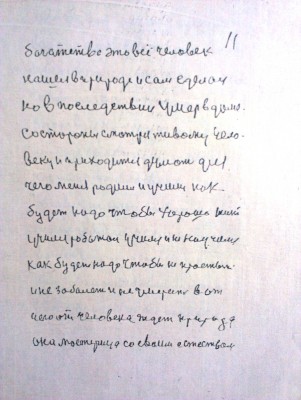 11
богатство это всё человек
нашел в природе и сам сделал
но в последствии умер в думе.
со стороны смотря живому чело-
веку и приходится думат для
чего меня родили и учили как
будет надо чтобы хорошо жит
учили работат учили и не научили
как будет надо чтобы не простыт.
и не заболет и не умерет в от
чего от человека ждет природа
она мастерица со своим естеством